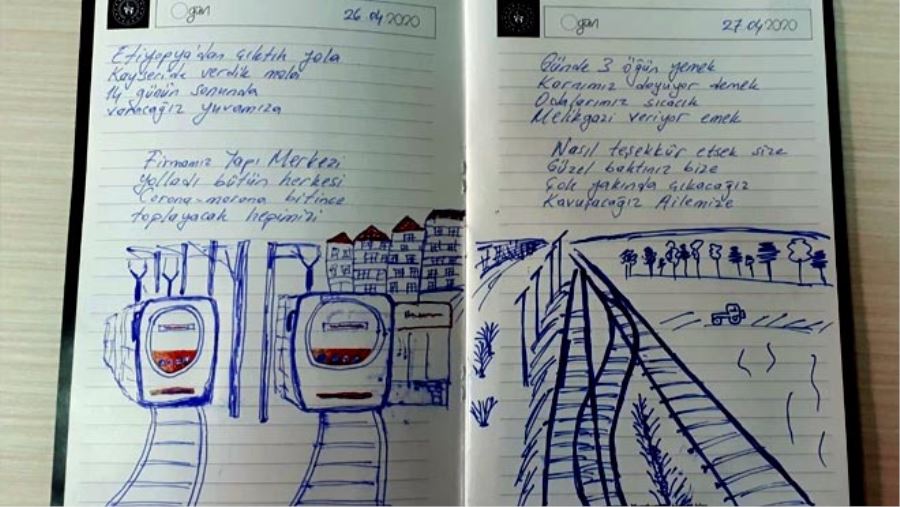 Ogün
26.04.2020
Etiyopya'dan çıktıh yola
Kayseride verdik molaı
14 günün sonunda
varacağız yuvamıza
Firmamız Yapı Merkezi
yolladı bütün herkesi
Corona-morona bitince
toplayacak hepimizi
Ogün
27.04.2020
Günde 3 öğün yemek
Karnımız doyuyor demek
Odalarımız sıcacık
Melikgazi veriyor emek
Nasıl teşekkür etsek size
Güzel baktınız bize
Çok yakında çıkacağız
Kavuşacağız Ailemize